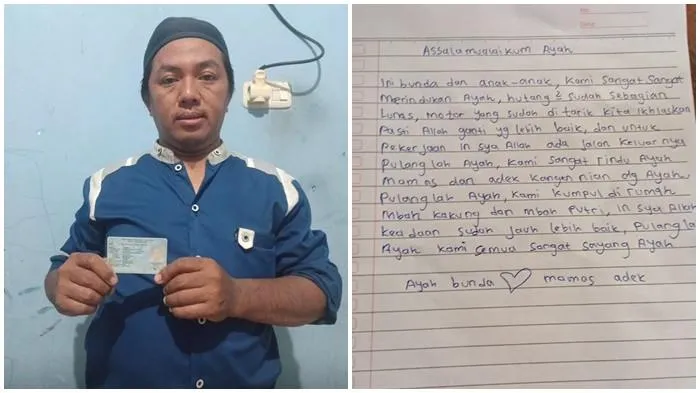 Assalamualaikum Ayah
Ini bunda dan anak-anak, kami sangat sangat
merindukan Ayah, hutang 2 sudah sebagian
Lunas, motor yang sudah di tarik kita ikhlaskan
Pasti Allah ganti yg lebih baik, dan untuk
Pekerjaan in sya Allah ada jalan keluarnya
Pulang lah Ayah, kami sangat rindu Ayah
mamas dan adek kangen nian dg Ayah
Pulang lah Ayah, kami kumpul di rumah
mbah kakung dan mbah Putri, in sya Allah
keadaan sudah jauh lebih baik, Pulang la
Ayah kami semua sangat sayang Ayah
Ayah bunda mamas adek